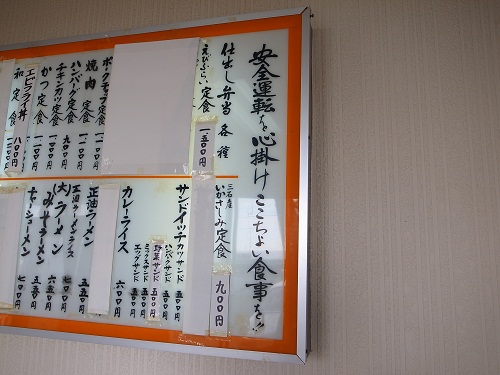 安全運転を心掛けここちよい食事を!!
仕出し弁当各種
えびふらい定食 一五〇〇円
ポークチャップ定食 一一〇〇円
焼肉定食 一一〇〇円
ハンバーグ定食 九〇〇円
チキンカツ定食 一一〇〇円
かつ定食 一一〇〇円
エビフライ丼 八〇〇円
和定食 一二〇〇円
三石産
いかさしみ定食 九〇〇円
サンドイッチカツサンド 五五〇円
ハンバクサンド 五五〇円
野菜サンド 五〇〇円
ミックスサンド 五五〇円
エッグサンド 五〇〇円
カレーライス 六〇〇円
正油ラーメン 五五〇円
正油ラーメンライス
大ラーメン 七〇〇円
みそラーメン 六五〇円
チャーシューメン 七〇〇円